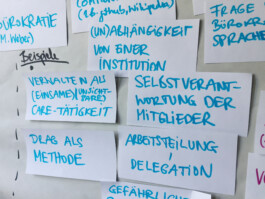 BÜROKRATIE
(M. Weber)
Beispiele
(z.B. github, wikipedia)
(UN)ABHÄNGIGKEIT
VON EINER
INSTITUTION
FRAGE
BÜROKR
SPRACHE
VERHALTEN ALS
(EINSAME)(UNSICHT-
BARE)
CARE-TÄTIGKEIT
SELBSTVERANT-
WORTUNG DER
MITGLIEDER
DRAG ALS
METHODE
ARBEITSTEILUNG
/
DELEGATION
GEFÄHRLICH